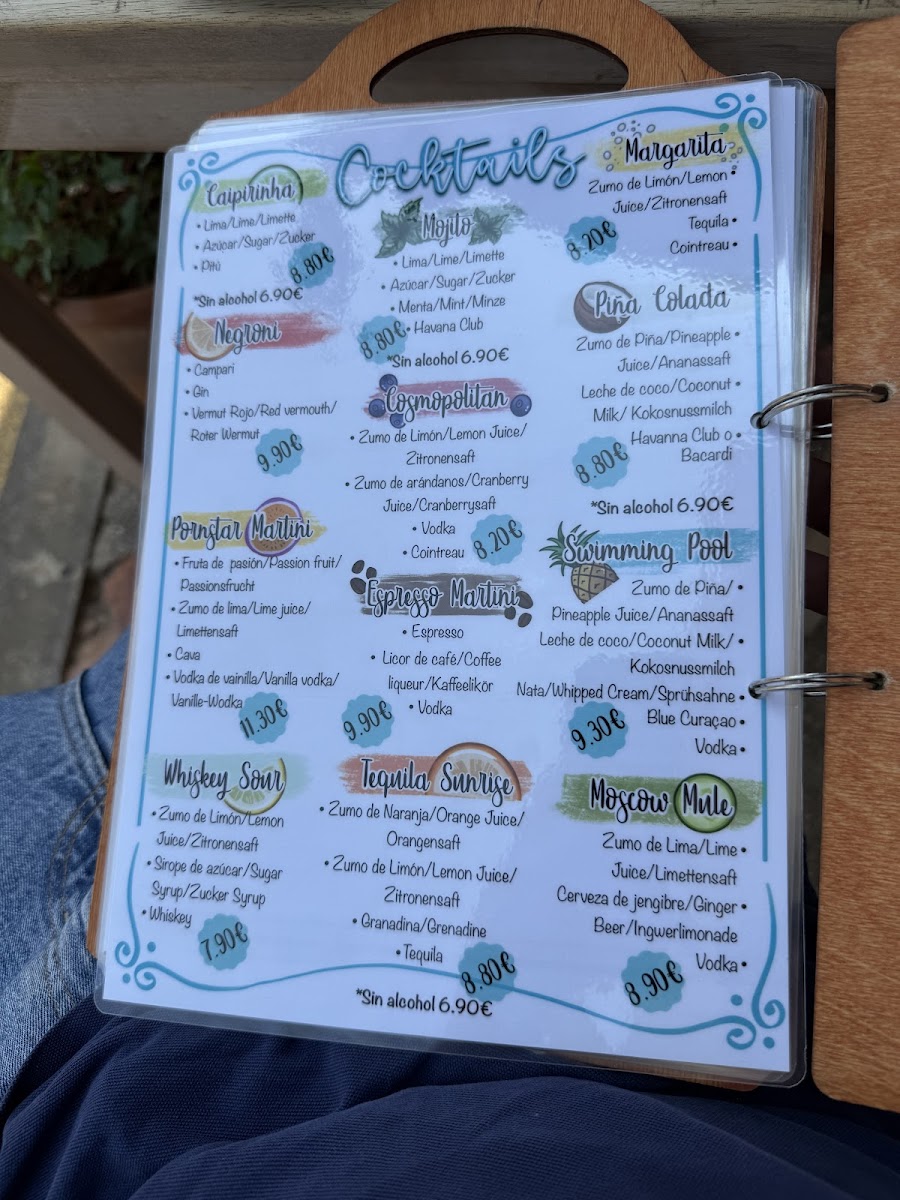 Cocktails
Caipirinha
• Lima/Lime/Limette
• Azúcar/Sugar/Zucker
• Pitú
8.80€
*Sin alcohol 6.90€
Negroni
• Campari
• Gin
• Vermut Rojo/Red vermouth/
Roter Wermut
9.90€
Pornstar Martini
• Fruta de pasión/Passion fruit/
Passionsfrucht
• Zumo de lima/Lime juice/
Limettensaft
• Cava
• Vodka de vainilla/Vanilla vodka/
Vanille-Wodka
11.30€
Whiskey Sour
• Zumo de Limón/Lemon
Juice/Zitronensaft
• Sirope de azúcar/Sugar
Syrup/Zucker Syrup
• Whiskey
7.90€
Mojito
• Lima/Lime/Limette
• Azúcar/Sugar/Zucker
• Menta/Mint/Minze
• Havana Club
8.80€
*Sin alcohol 6.90€
Cosmopolitan
• Zumo de Limón/Lemon Juice/
Zitronensaft
• Zumo de arándanos/Cranberry
Juice/Cranberrysaft
• Vodka
• Cointreau
8.20€
Espresso Martini
• Espresso
• Licor de café/Coffee
liqueur/Kaffeelikör
• Vodka
9.90€
Tequila Sunrise
• Zumo de Naranja/Orange Juice/
Orangensaft
• Zumo de Limón/Lemon Juice/
Zitronensaft
• Granadina/Grenadine
• Tequila
8.80€
*Sin alcohol 6.90€
Margarita
Zumo de Limón/Lemon •
Juice/Zitronensaft
Tequila •
Cointreau •
8.20€
Piña Colada
Zumo de Piña/Pineapple •
Juice/Ananassaft
Leche de coco/Coconut •
Milk/ Kokosnussmilch
Havanna Club o •
Bacardi
8.80€
*Sin alcohol 6.90€
Swimming Pool
Zumo de Piña/ •
Pineapple Juice/Ananassaft
Leche de coco/Coconut Milk/ •
Kokosnussmilch
Nata/Whipped Cream/Sprühsahne •
Blue Curaçao •
Vodka •
9.30€
Moscow Mule
Zumo de Lima/Lime •
Juice/Limettensaft
Cerveza de jengibre/Ginger •
Beer/Ingwerlimonade
Vodka •
8.90€